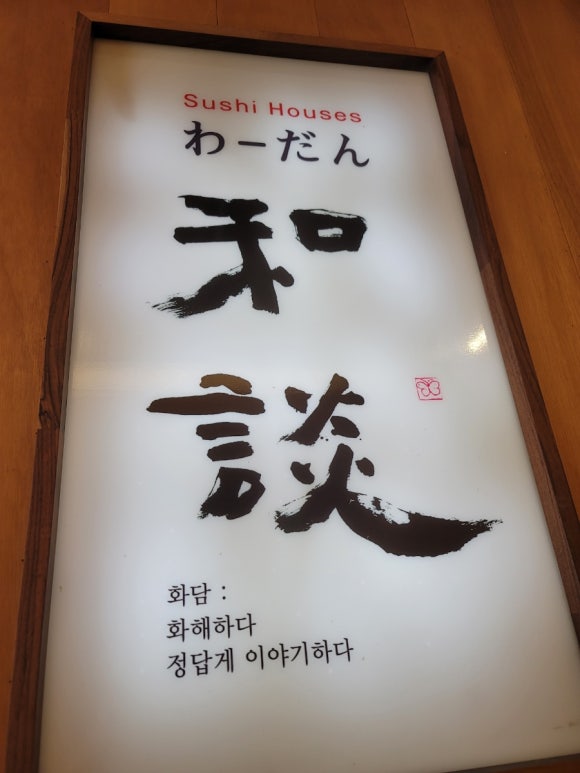 Sushi Houses
わーだん
和
談
화담 :
화해하다
정답게 이야기하다